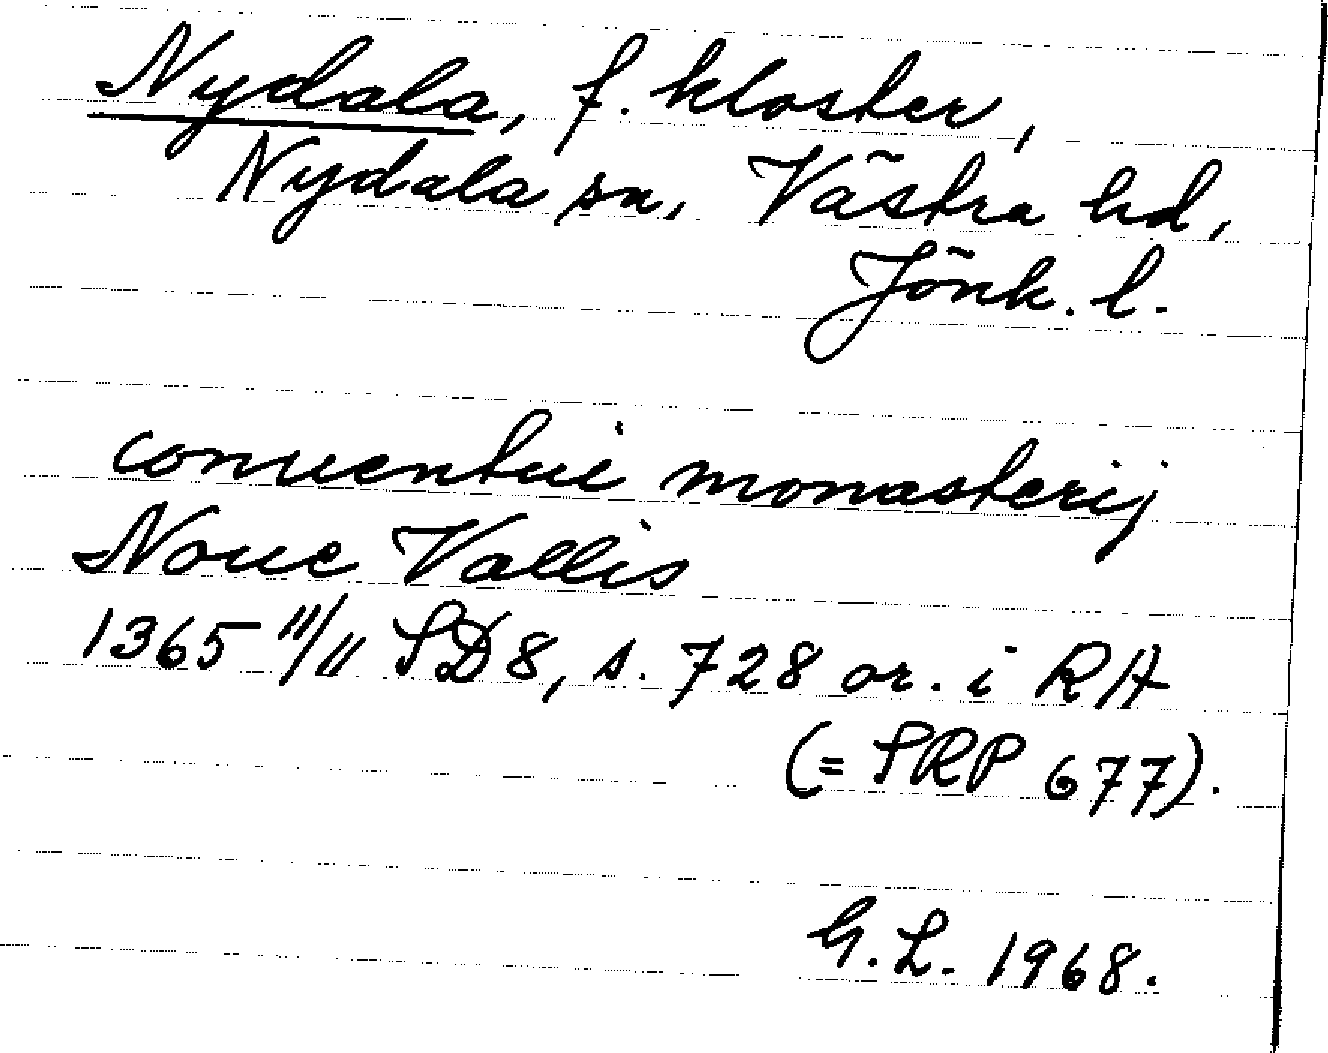 Nydala, f. kloster,
Nydala sn, Västra hd,
Jönk. l.
conuentui monasterij
Noue Vallis
1365 11/11 SD8, s. 728 or. i RA
(= SRP 677).
G. L. 1968.